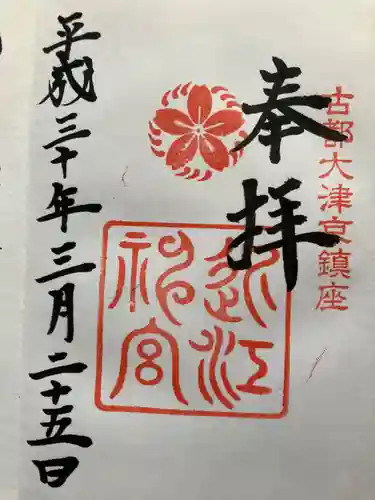 古都大津京鎮座
奉拝
近江神宮
平成三十年三月二十五日